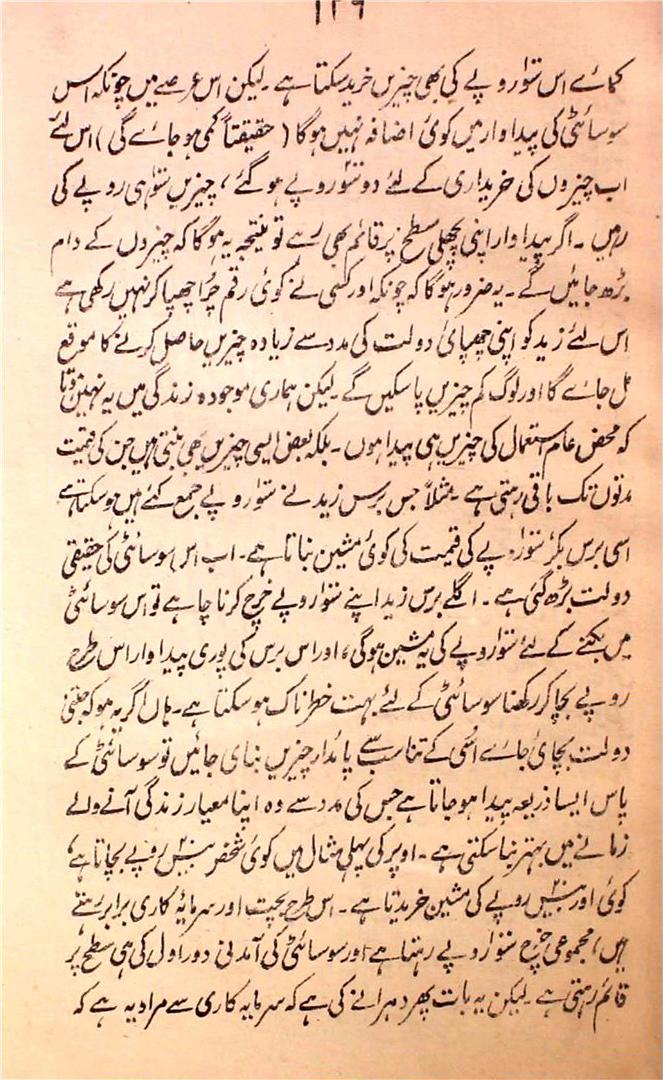 ۱۲۹
کمائے اس سَو روپے کی بھی چیزیں خرید سکتا ہے۔ لیکن اس عرصے میں چونکہ اس
سوسائٹی کی پیداوار میں کوئی اضافہ نہیں ہوگا (حقیقتاً کمی ہوجائے گی) اس لئے
اب چیزوں کی خریداری کے لئے دو سَو روپے ہوگئے، چیزیں سَو ہی روپے کی
رہیں۔ اگر پیداوار اپنی پچھلی سطح پر قائم بھی رہے تو نتیجہ یہ ہوگا کہ چیزوں کے دام
بڑھ جائیں گے۔ یہ ضرور ہوگا کہ چونکہ اور کسی نے کوئی رقم چرا چھپا کر نہیں رکھی ہے
اس لئے زید کو اپنی چھپائی دولت کی مدد سے زیادہ چیزیں حاصل کرنے کا موقع
مل جائے گا اور لوگ کم چیزیں پا سکیں گے۔ لیکن ہماری موجودہ زندگی میں یہ نہیں ہوتا
کہ محض عام استعمال کی چیزیں ہی پیدا ہوں۔ بلکہ بعض ایسی چیزیں بھی بنتی ہیں جن کی قیمت
مدتوں تک باقی رہتی ہے۔ مثلاً جس برس زید نے سَو روپے جمع کئے ہیں ہو سکتا ہے
اسی برس بکر سَو روپے کی قیمت کی کوئی مشین بناتا ہے۔ اب اس سوسائٹی کی حقیقی
دولت بڑھ گئی ہے۔ اگلے برس زید اپنے سَو روپے خرچ کرنا چاہے تو اس سوسائٹی
میں بکنے کے لئے سَو روپے کی یہ مشین ہوگی، اور اس برس کی پوری پیداوار اس طرح
روپے بچا کر رکھنا سوسائٹی کے لئے بہت خطرناک ہو سکتا ہے۔ ہاں اگر یہ ہو کہ جتنی
دولت بچائی جائے اسی کے تناسب سے پائدار چیزیں بنائی جائیں تو سوسائٹی کے
پاس ایسا ذریعہ پیدا ہو جاتا ہے جس کی مدد سے وہ اپنا معیار زندگی آنے والے
زمانے میں بہتر بنا سکتی ہے۔ اوپر کی پہلی مثال میں کوئی شخص بیس روپے بچاتا ہے،
کوئی اور بیس روپے کی مشین خریدتا ہے۔ اس طرح بچت اور سرمایہ کاری برابر رہتے
ہیں، مجموعی خرچ سَو روپے رہتا ہے اور سوسائٹی کی آمدنی دور اول کی ہی سطح پر
قائم رہتی ہے۔ لیکن یہ بات پھر دہرانے کی ہے کہ سرمایہ کاری سے مراد یہ ہے کہ